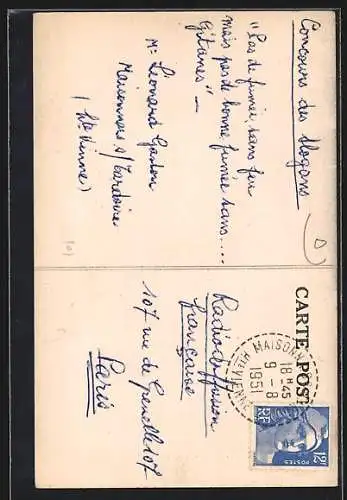 Concours des Slogans
"Pas de fumée, sans feu
mais pas de bonne fumée sans....
Gitanes" —
Mr Léonard Gaston
Maisonnais s/ Tardoire
(Hte Vienne)
CARTE POST
MAISONN
18H45
9-8
1951
VIENNE
12F
RF
POSTES
Radiodiffusion
française
107 rue de Grenelle 107
Paris